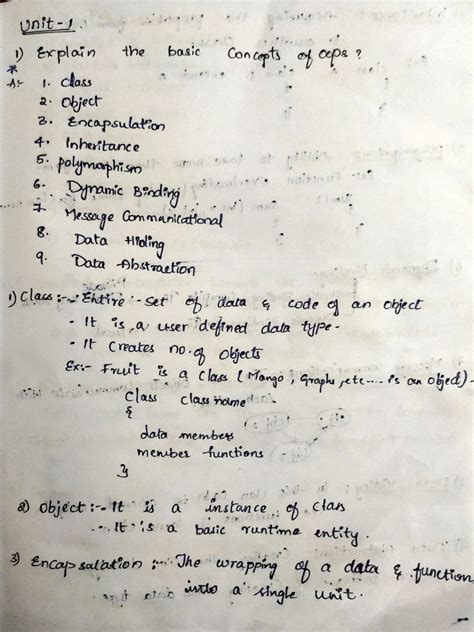 Unit-1
1) Explain the basic Concepts of oops ?
* A:- 1. Class
2. Object
3. Encapsulation
4. Inheritance
5. polymaphism
6. Dynamic Binding
7. Message Communicational
8. Data Hiding
9. Data Abstraction
1) Class :- - Entire - Set of data & code of an object
- It is a user defined data type.
- It creates no. of Objects
Ex:- Fruit is a Class ( Mango, Graphs, etc.... is an object).
Class Classname
{
data members
member functions
}
2) Object :- - It is a instance of Class
- It is a basic runtime entity.
3) Encapsulation :- The wrapping of a data & function
into a single unit.